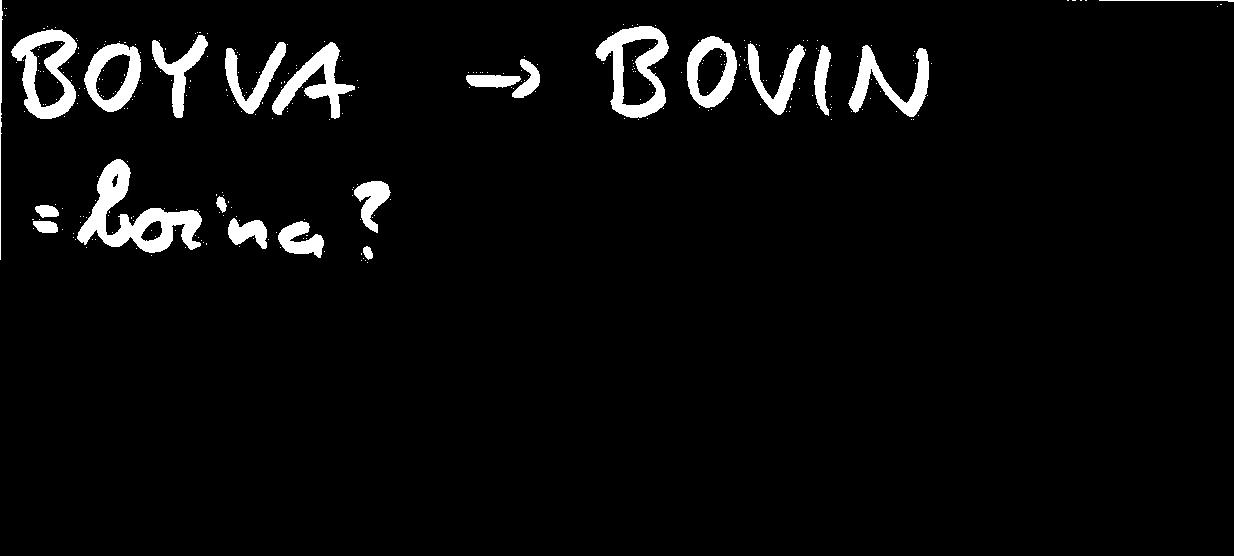 BOYVA → BOVIN
= boina ?